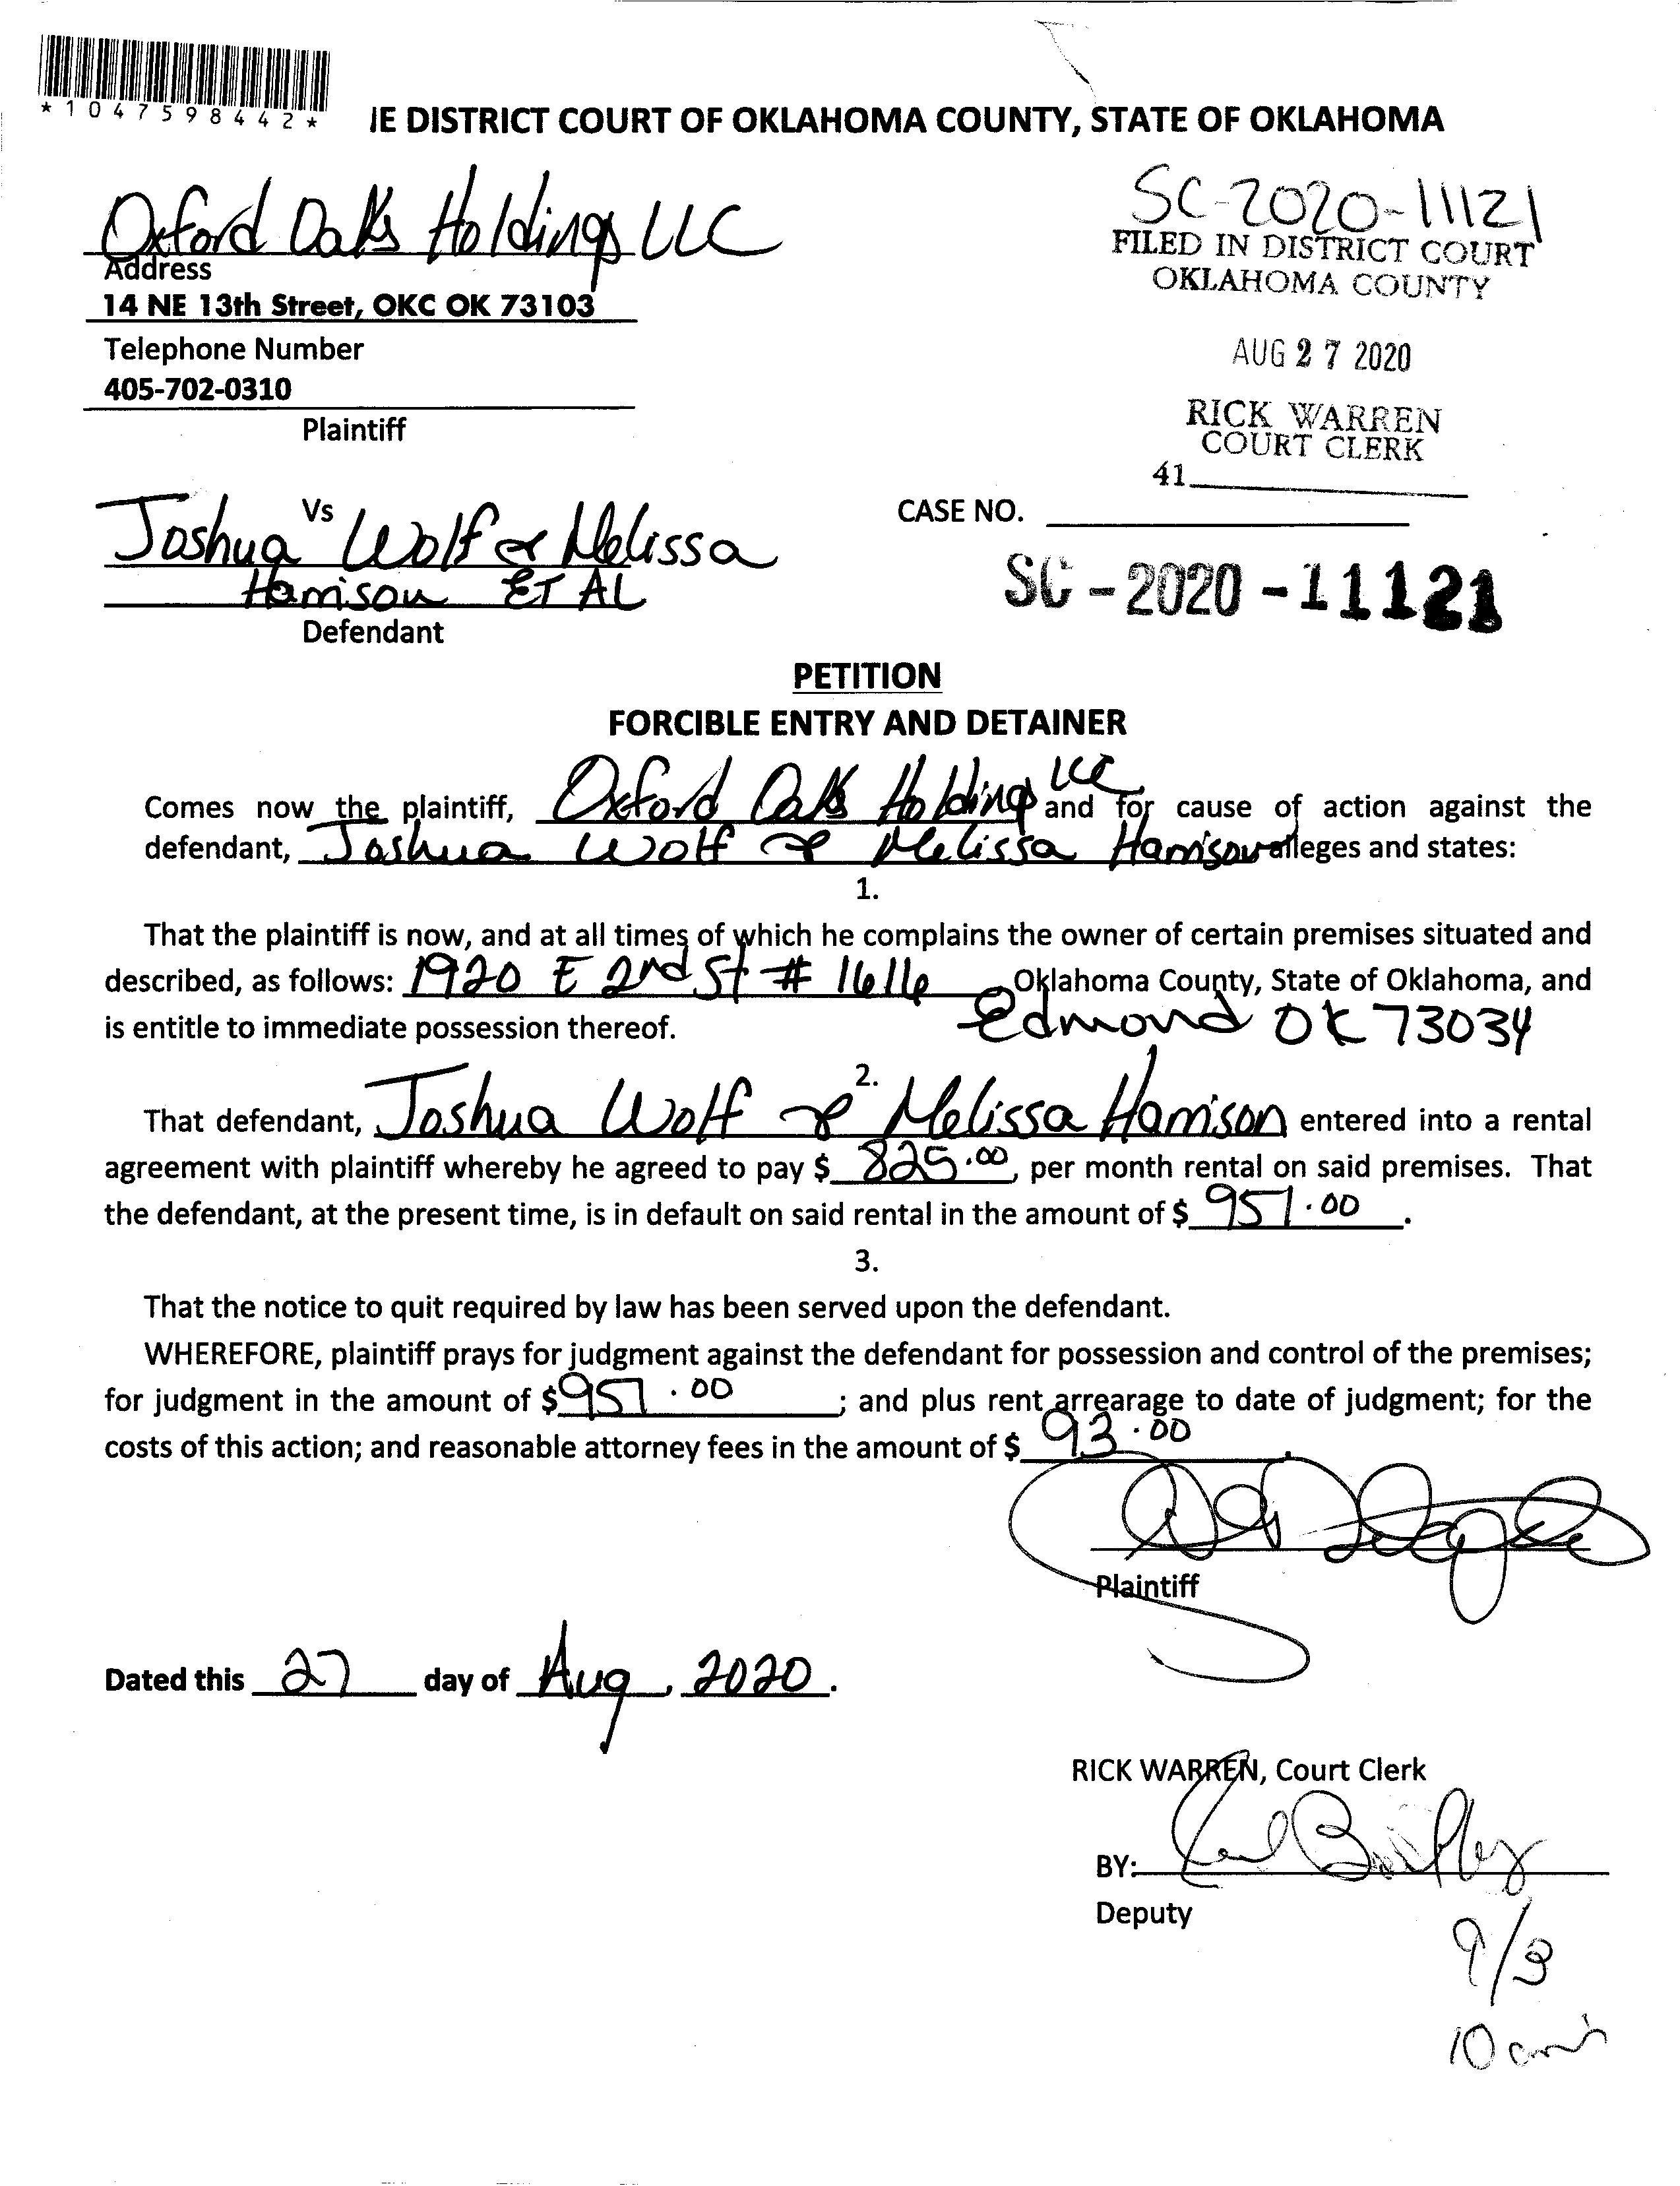 *1047598442*
IE DISTRICT COURT OF OKLAHOMA COUNTY, STATE OF OKLAHOMA
Oxford Oaks Holdings LLC
Address
14 NE 13th Street, OKC OK 73103
Telephone Number
405-702-0310
Plaintiff
SC-2020-11121
FILED IN DISTRICT COURT
OKLAHOMA COUNTY
AUG 27 2020
RICK WARREN
COURT CLERK
41
Vs
Joshua Wolf & Melissa
Harrison ET AL
Defendant
CASE NO.
SC-2020-11121
PETITION
FORCIBLE ENTRY AND DETAINER
Comes now the plaintiff, Oxford Oaks Holdings LLC and for cause of action against the
defendant, Joshua Wolf & Melissa Harrison alleges and states:
1.
That the plaintiff is now, and at all times of which he complains the owner of certain premises situated and
described, as follows: 1920 E 2nd St # 1616 Oklahoma County, State of Oklahoma, and
is entitle to immediate possession thereof. Edmond OK 73034
2.
That defendant, Joshua Wolf & Melissa Harrison entered into a rental
agreement with plaintiff whereby he agreed to pay $ 825.00, per month rental on said premises. That
the defendant, at the present time, is in default on said rental in the amount of $ 951.00.
3.
That the notice to quit required by law has been served upon the defendant.
WHEREFORE, plaintiff prays for judgment against the defendant for possession and control of the premises;
for judgment in the amount of $951.00; and plus rent arrearage to date of judgment; for the
costs of this action; and reasonable attorney fees in the amount of $ 93.00.
Plaintiff
Dated this 27 day of Aug, 2020.
RICK WARREN, Court Clerk
BY:
Deputy
9/3
10 am